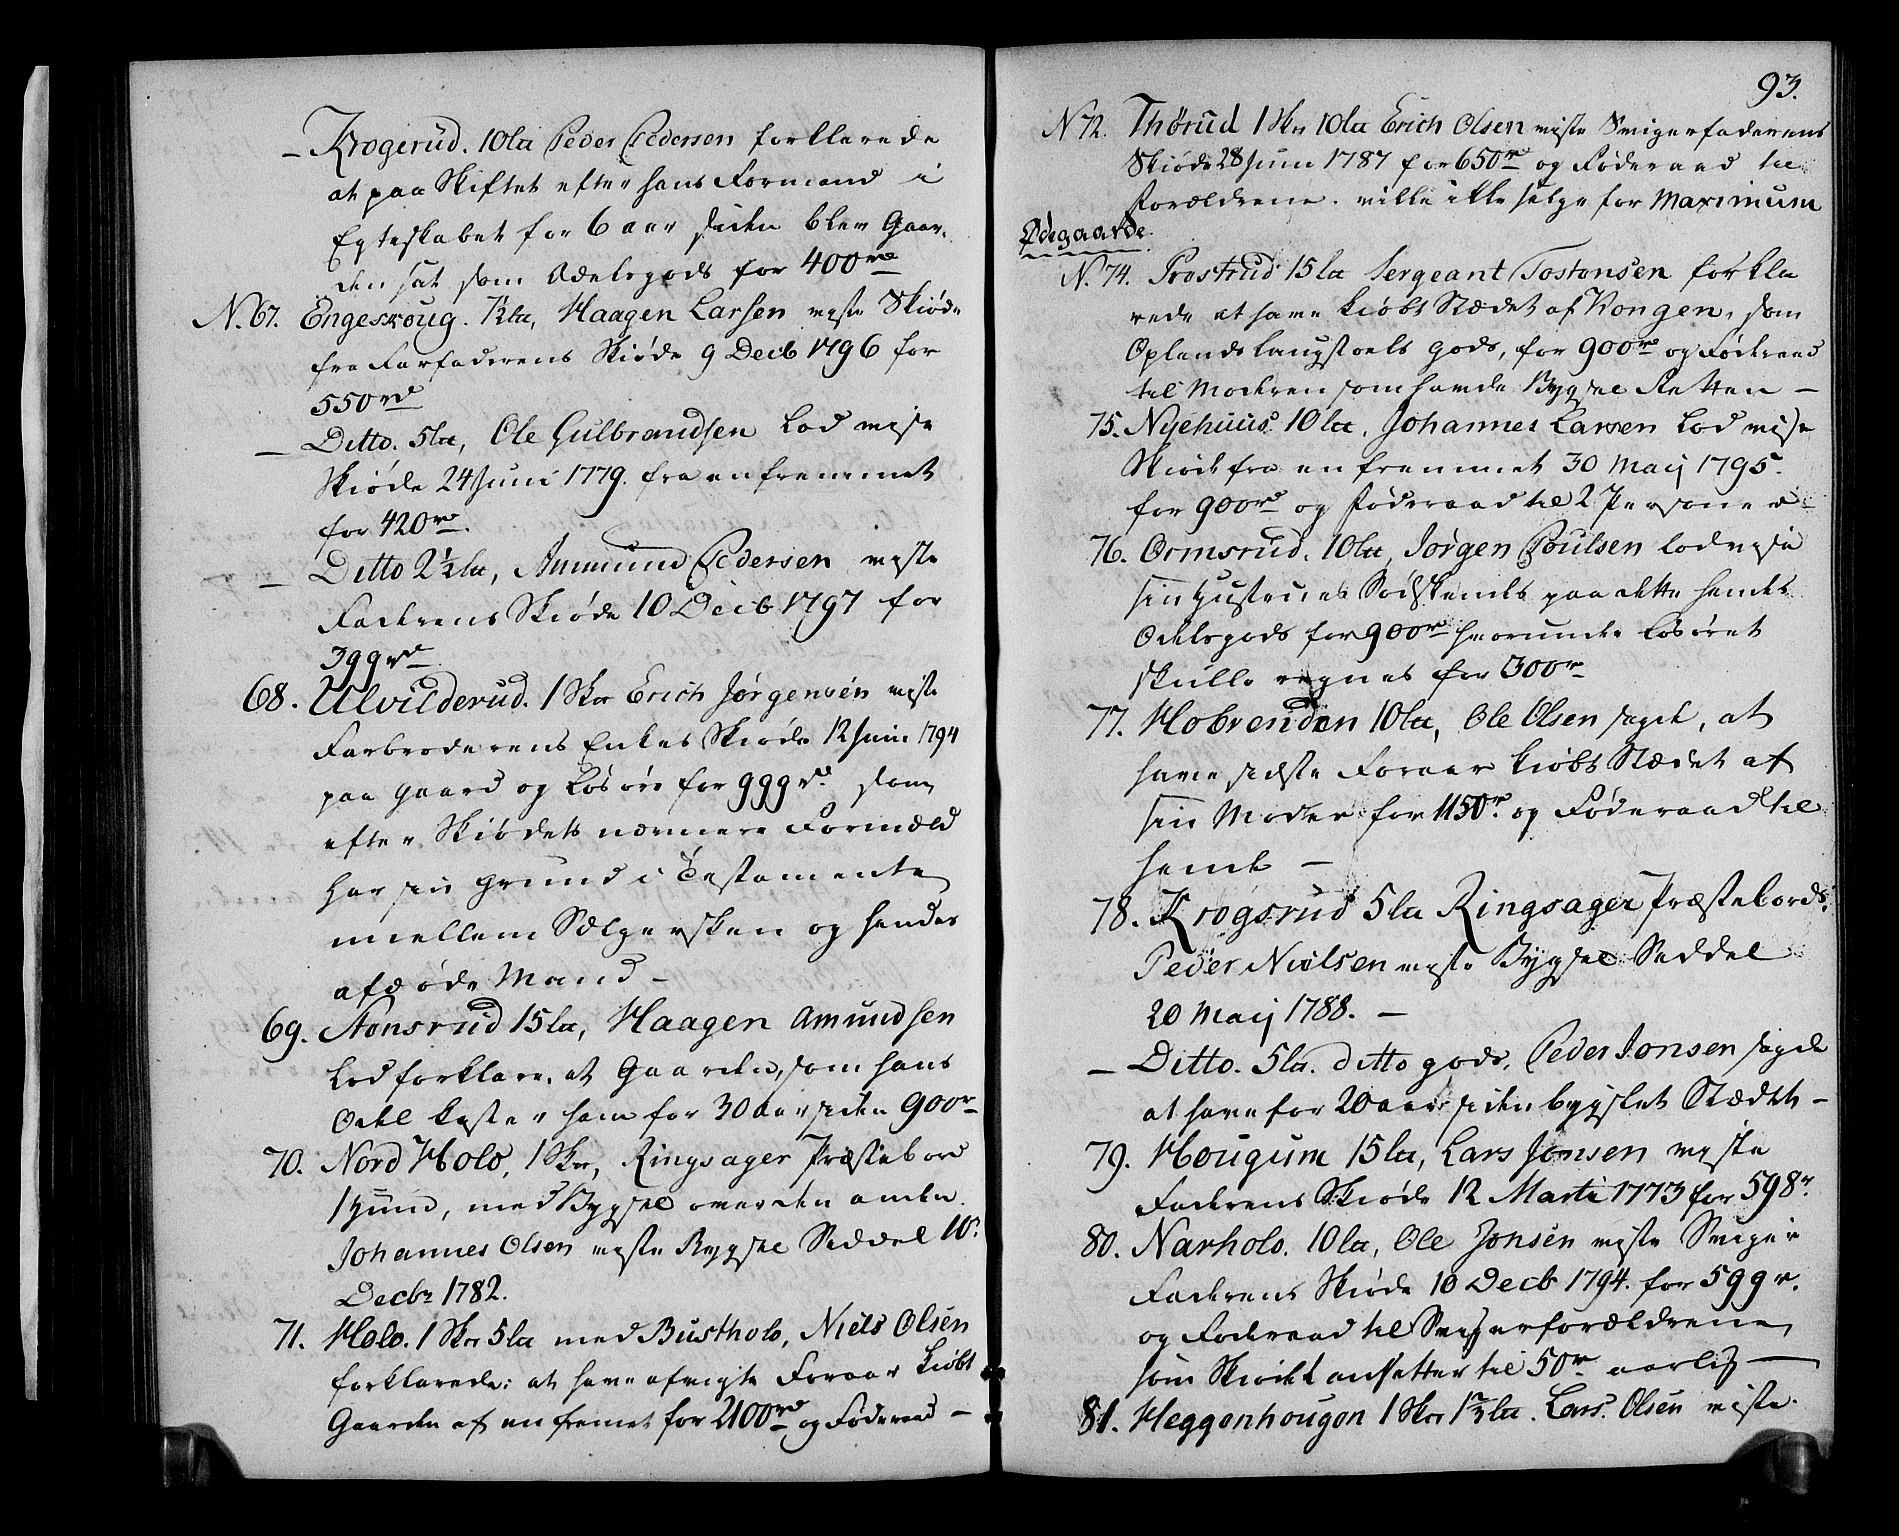 – Krogerud. 10 la Peder Pedersen forklarede
at paa Skiftet efter hans Formand i
Egteskabet for 6 aar siden blev Gaar-
den sat som Odelsgods for 400 rd
N. 67. Engeskoug. 7½ la, Haagen Larsen viste Skiøde
fra Farfaderens Skiøde 9 Decb 1796 for
550 rd
– Ditto. 5 la, Ole Gulbrandsen lod vise
Skiøde 24 Juni 1779. fra en fremmet
for 420 rd.
– Ditto 2½ la, Ammund Pedersen viste
Faderens Skiøde 10 Decb 1797 for
399 rd
68. Ulvilderud. 1 Skr Erich Jørgensen viste
Farbroderens Enkes Skiøde 12 Juni 1794
paa Gaard og Løsøre for 999 rd. som
efter Skiødets nærmere Formæld
har sin Grund i Testamente
mellem Sælgersken og hendes
afdøde Mand –
69. Nonsrud 15 la, Haagen Amundsen
lod forklare, at Gaarden, som hans
Odel koster ham for 30 aar siden 900 r
70. Nord Holo, 1 Skr, Ringsager Præstebord
1 Hund, med Bygsel over den anden.
Johannes Olsen viste Bygsel Seddel 10.
Decbr 1782.
71. Holo. 1 Skr 5 la med Bustholo, Niels Olsen
forklarede: at have afvigte Foraar kiøbt
Gaarden af en fremet for 2100 rd og Føderaad –
93.
N 72. Thørud 1 Skr 10 la Erich Olsen viste Svigerfaderens
Skiøde 28 Juni 1787 for 650 rd og Føderaad til
Forældrene. ville ikke selge for Maximum
Ødegaarde.
N. 74. Prostrud 15 la Sergeant Tostensen forkla
rede at have kiøbt Stædet af Kongen, som
Oplands Laugstoels gods, for 900 rd og Føderaad
til Moderen som havde Bygsel Retten –
75. Nyehuus 10 la. Johannes Larsen lod vise
Skiøde fra en fremmet 30 Maij 1795.
for 900 rd og Føderaad til 2 Personer
76. Ormsrud. 10 la, Jørgen Poulsen lod vise
sin Hustrues Sødskendes paa dette hendes
Odelsgods for 900 rd hvorunder Løsøret
skulle regnes for 300 r
77. Hobrenden 10 la, Ole Olsen sagde, at
have sidste Foraar kiøbt Stædet af
sin Moder for 1150 r. og Føderaad til
hende –
78. Krogsrud 5 la Ringsager Præstebords.
Peder Nielsen viste Bygsel Seddel
20 Maij 1788. –
– Ditto. 5 la. ditto gods, Peder Jonsen sagde
at have for 20 aar siden bygslet Stædet –
79. Hougum 15 la, Lars Jonsen viste
Faderens Skiøde 12 Marti 1773 for 598 r.
80. Narholo. 10 la, Ole Jonsen viste Sviger
Faderens Skiøde 10 Decb 1794. for 599 r.
og Føderaad til Svigerforældrene,
som Skiødet ansetter til 50 r aarlig –
81. Heggenhougen 1 Skr la. Lars. Olsen viste.